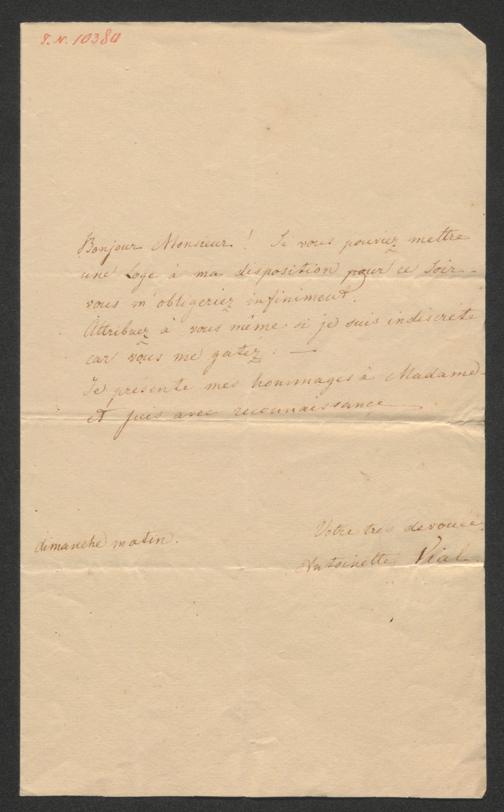 I. N. 10380
Bonjour Monsieur ! Si vous pouviez mettre
une Loge à ma disposition pour ce soir -
vous m'obligeriez infiniment.
Attribuez à vous même si je suis indiscrete
car vous me gatez . —
Je présente mes hommages à Madame
et suis avec reconnaissance —
Votre tres devouée
dimanche matin.
Antoinette Vial